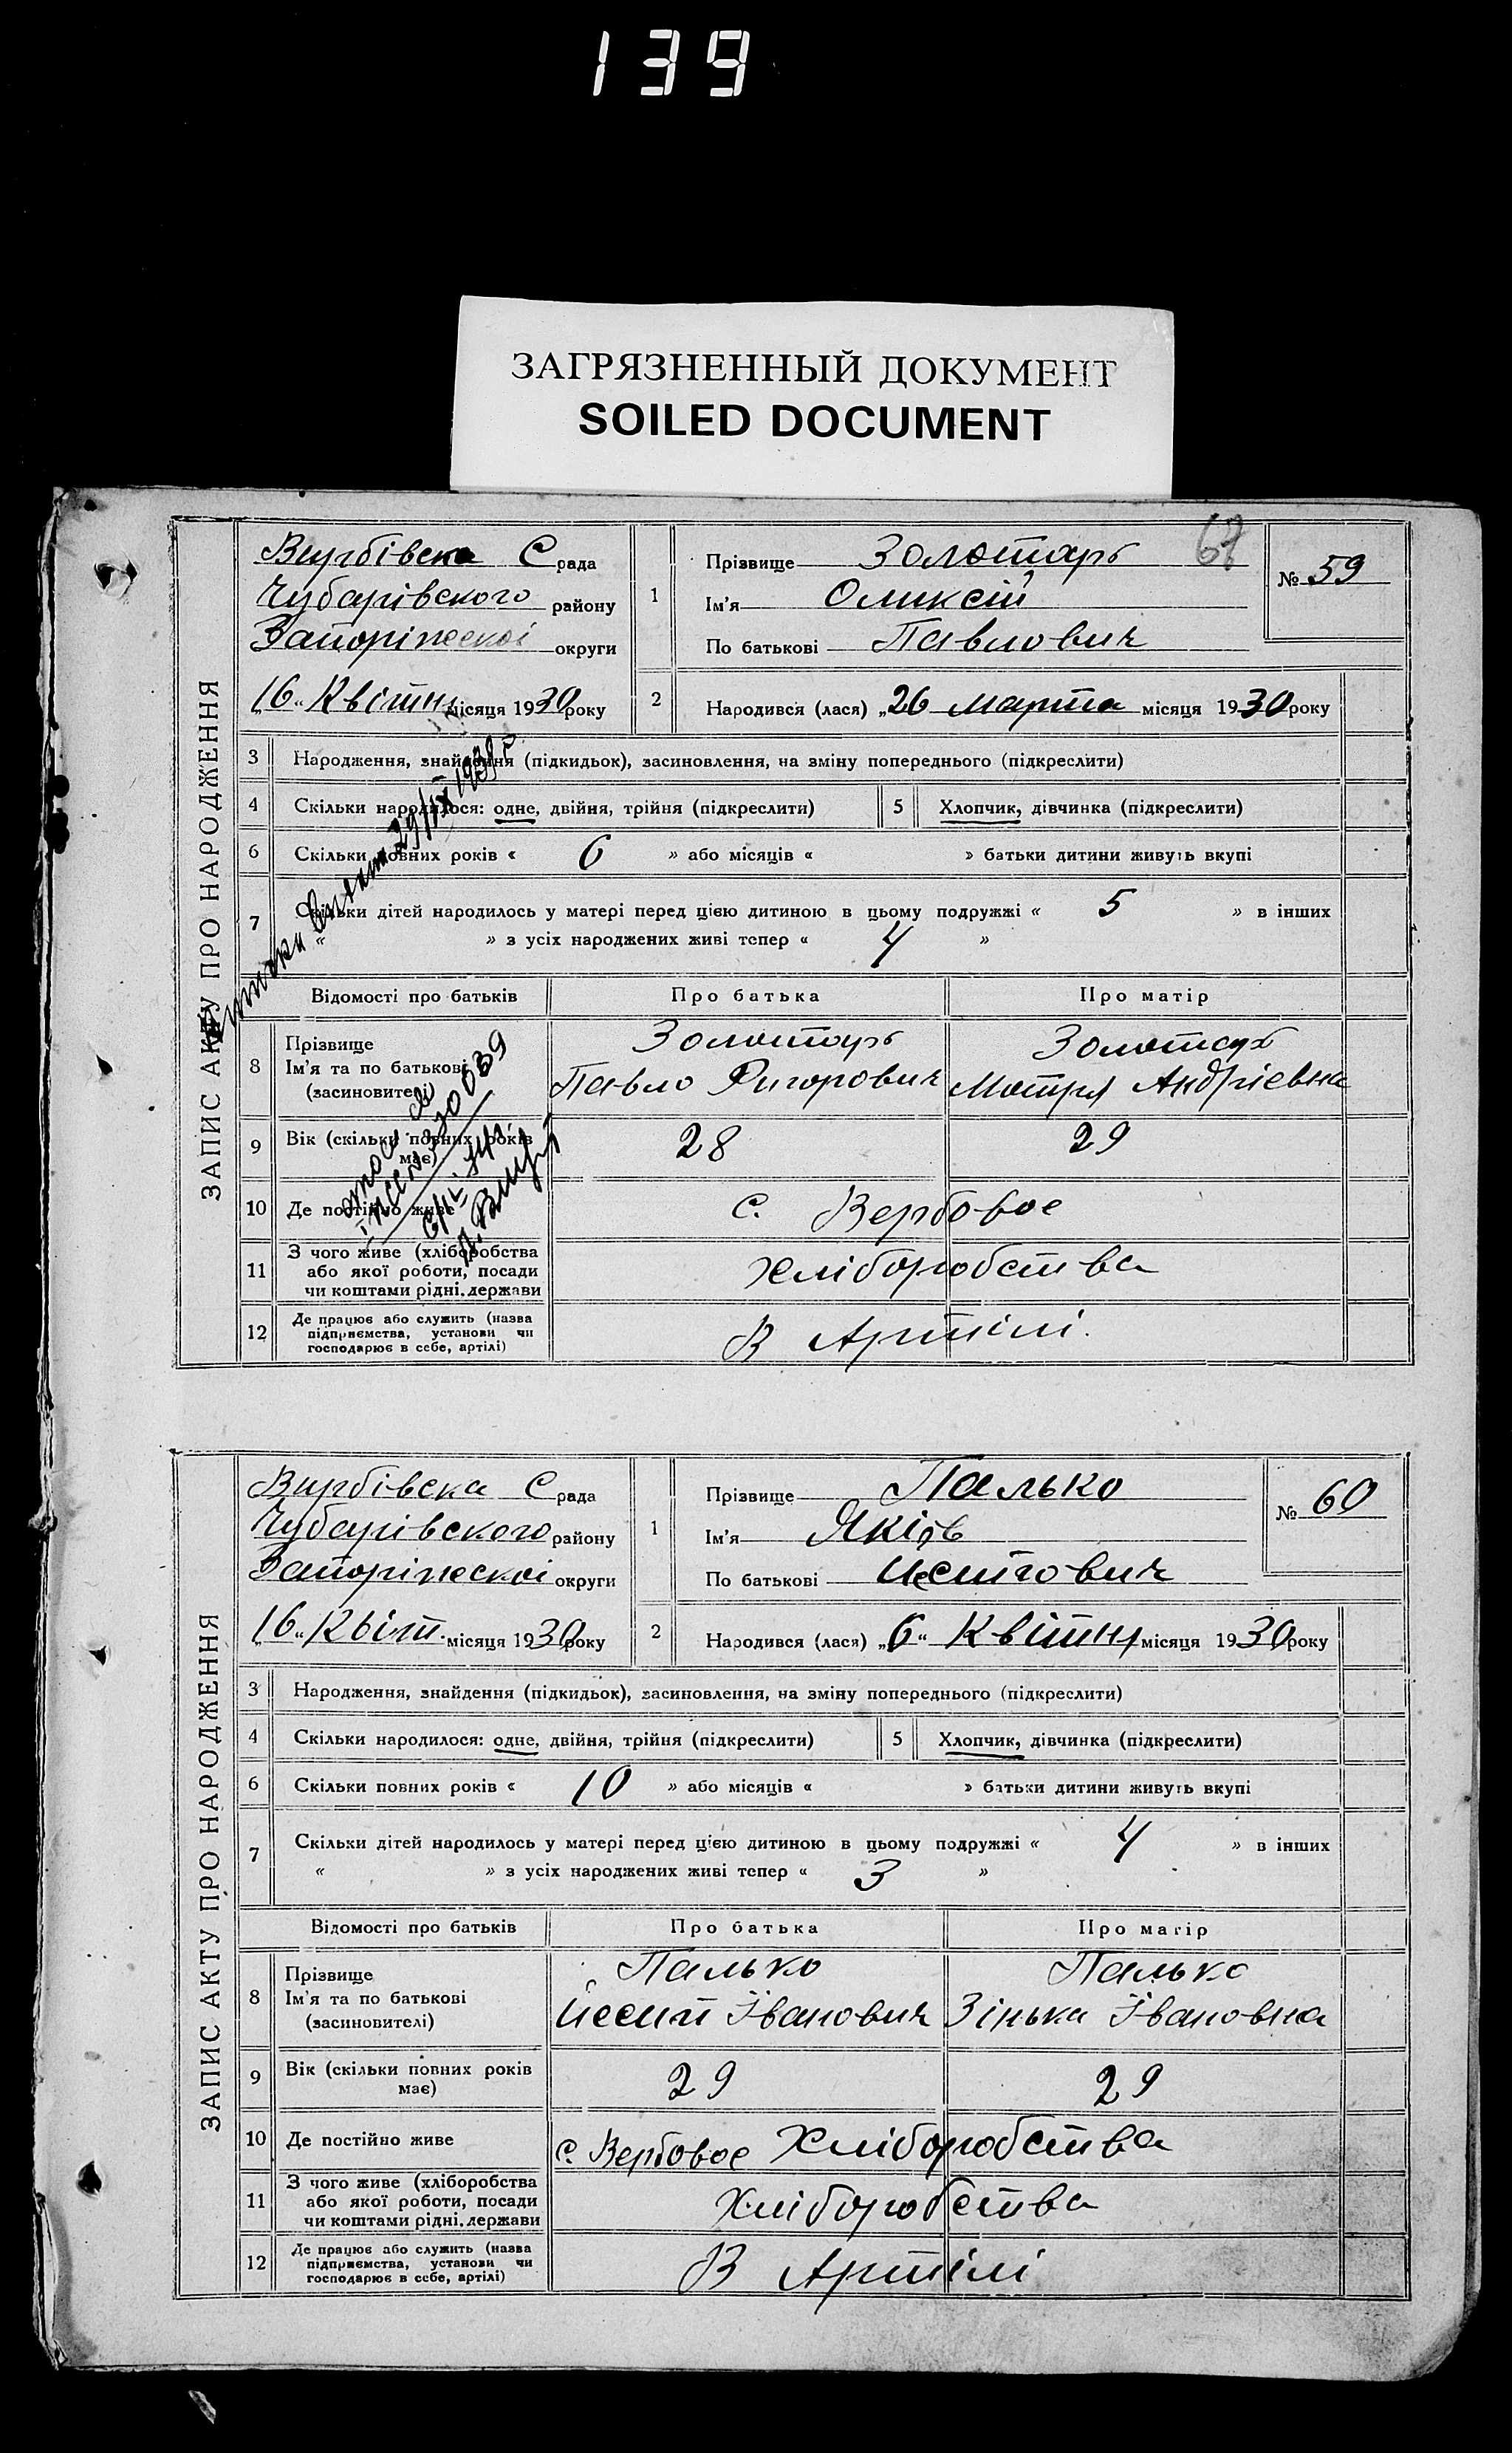 139
ЗАГРЯЗНЕННЫЙ ДОКУМЕНТ
SOILED DOCUMENT
67
ЗАПИС АКТУ ПРО НАРОДЖЕННЯ
Вирбівска С рада
Чубарівского району
Запоріжескоі округи
„16“ Квітня місяця 1930 року
1 Прізвище Золотарь
Ім'я Оликсій
По батькові Павлович
№ 59
2 Народився (лася) „26 Марта місяця 1930 року
3 Народження, знайдення (підкидьок), засиновлення, на зміну попереднього (підкреслити)
4 Скільки народилося: одне, двійня, трійня (підкреслити) 5 Хлопчик, дівчинка (підкреслити)
6 Скільки повних років « 6 » або місяців « » батьки дитини живуть вкупі
7 Скільки дітей народилось у матері перед цією дитиною в цьому подружжі « 5 » в інших
« » з усіх народжених живі тепер « 4 »
29/IX 1939 г.
Відомості про батьків Про батька Про матір
8 Прізвище
Ім'я та по батькові
(засновителі)
Золотарь
Павло Григорович
Золотарь
Мотря Андріевна
9 Вік (скільки повних років
має)
28 29
10 Де постійно живе с. Вербовое
11 З чого живе (хліборобства
або якої роботи, посади
чи коштами рідні, держави
Хліборобства
12 Де працює або служить (назва
підприємства, установи чи
господарює в себе, артілі)
В Артілі.
ЗАПИС АКТУ ПРО НАРОДЖЕННЯ
Вирбівска С рада
Чубарівского району
Запоріжескоі округи
„16“ Квіт. місяця 1930 року
1 Прізвище Палько
Ім'я Яків
По батькові
№ 60
2 Народився (лася) „6“ Квітня місяця 1930 року
3 Народження, знайдення (підкидьок), засиновлення, на зміну попереднього (підкреслити)
4 Скільки народилося: одне, двійня, трійня (підкреслити) 5 Хлопчик, дівчинка (підкреслити)
6 Скільки повних років « 10 » або місяців « » батьки дитини живуть вкупі
7 Скільки дітей народилось у матері перед цією дитиною в цьому подружжі « 4 » в інших
« » з усіх народжених живі тепер « 3 »
Відомості про батьків Про батька Про матір
8 Прізвище
Ім'я та по батькові
(засиновителі)
Палько
Йосип Іванович
Палько
Зінька Івановна
9 Вік (скільки повних років
має)
29 29
10 Де постійно живе с. Вербовое Хліборобства
11 З чого живе (хліборобства
або якої роботи, посади
чи коштами рідні, держави
Хліборобства
12 Де працює або служить (назва
підприємства, установи чи
господарює в себе, артілі)
В Артілі